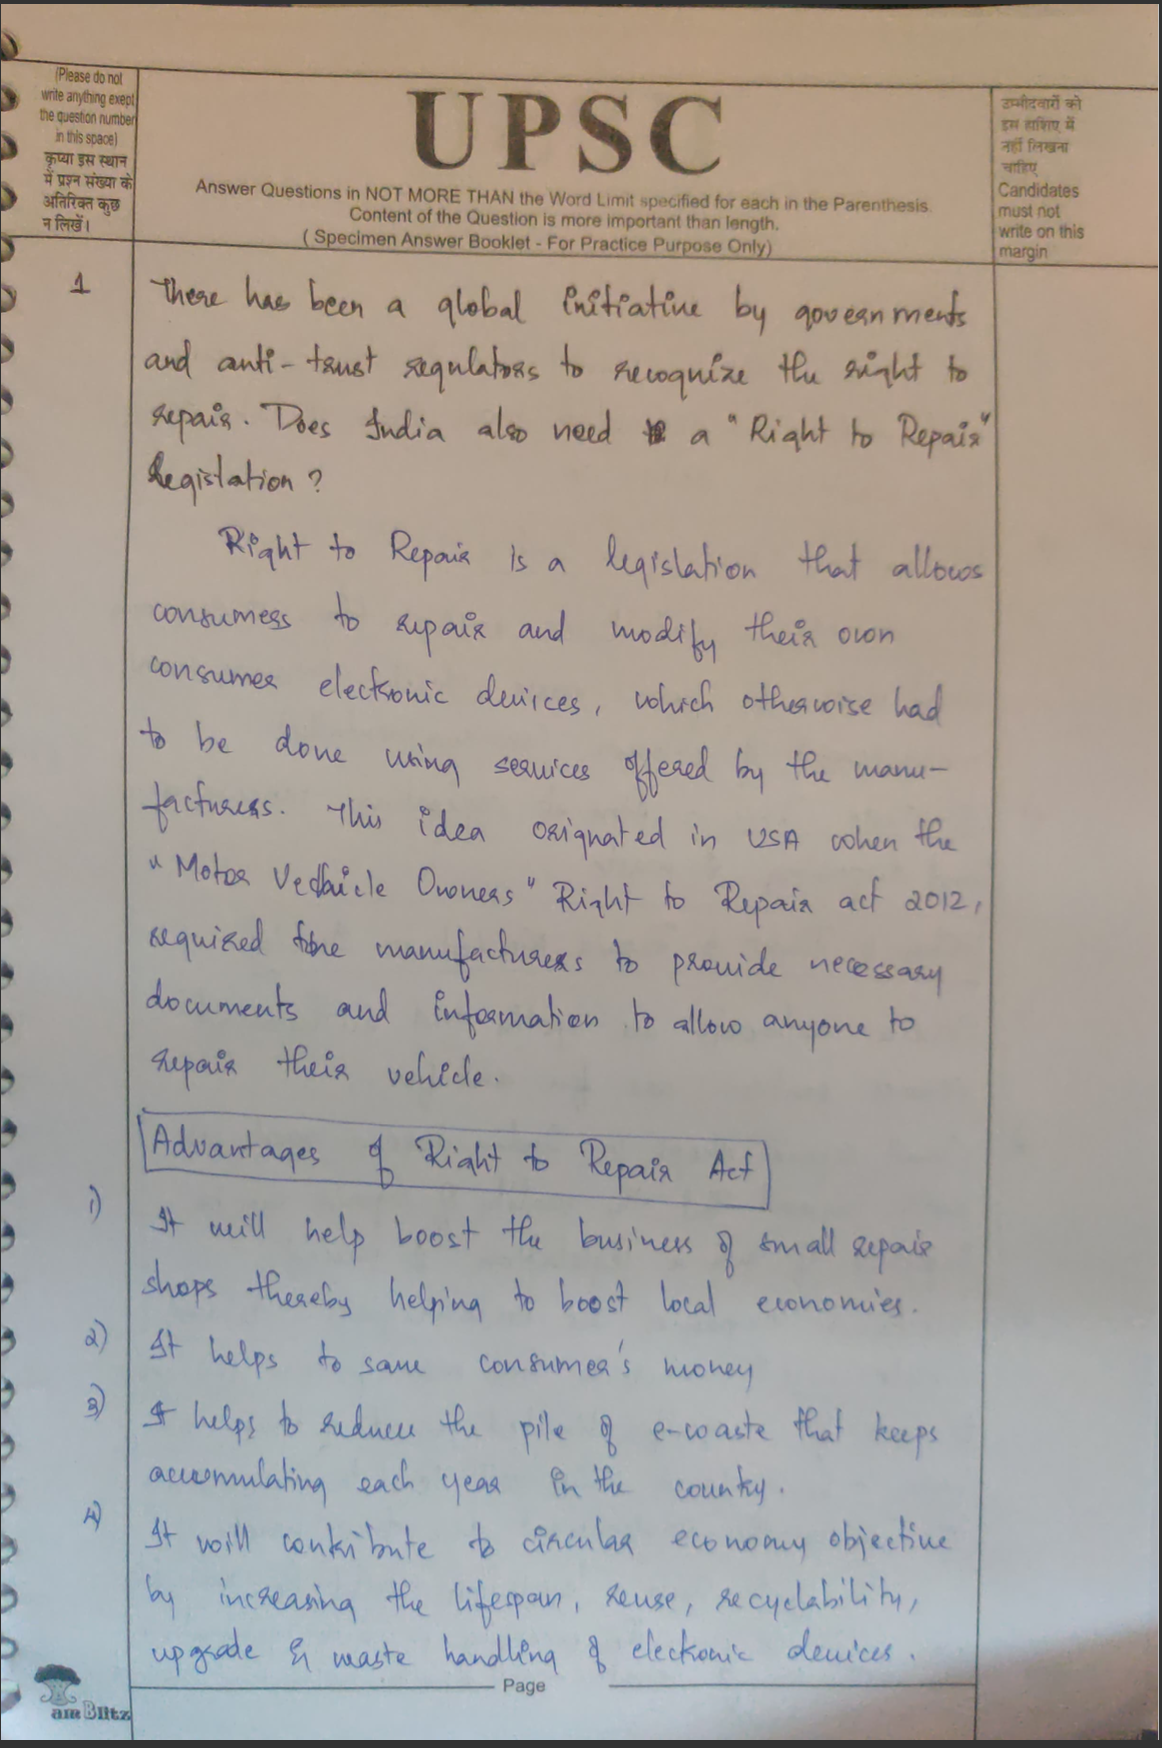 (Please do not
write anything exept
the question number
in this space)
कृप्या इस स्थान
में प्रश्न संख्या के
अतिरिक्त कुछ
न लिखें।
UPSC
Answer Questions in NOT MORE THAN the Word Limit specified for each in the Parenthesis.
Content of the Question is more important than length.
( Specimen Answer Booklet - For Practice Purpose Only)
उम्मीदवारों को
इस हाशिए में
नहीं लिखना
चाहिए
Candidates
must not
write on this
margin
1
There has been a global initiative by governments
and anti-trust regulators to recognize the right to
repair. Does India also need a "Right to Repair"
legistation?
Right to Repair is a legislation that allows
consumers to repair and modify their own
consumer electronic devices, which otherwise had
to be done using services offered by the manu-
facturers. This idea orignated in USA when the
"Motor Vehicle Owners" Right to Repair act 2012,
required the manufacturers to provide necessary
documents and information to allow anyone to
repair their vehicle.
Advantages of Right to Repair Act
1) It will help boost the business of small repair
shops thereby helping to boost local economies.
2) It helps to save consumer's money
3) It helps to reduce the pile of e-waste that keeps
accumulating each year in the country.
4) It will contribute to circular economy objective
by increasing the lifespan, reuse, recyclability,
upgrade & waste handling of electronic devices.
Page
amBlitz